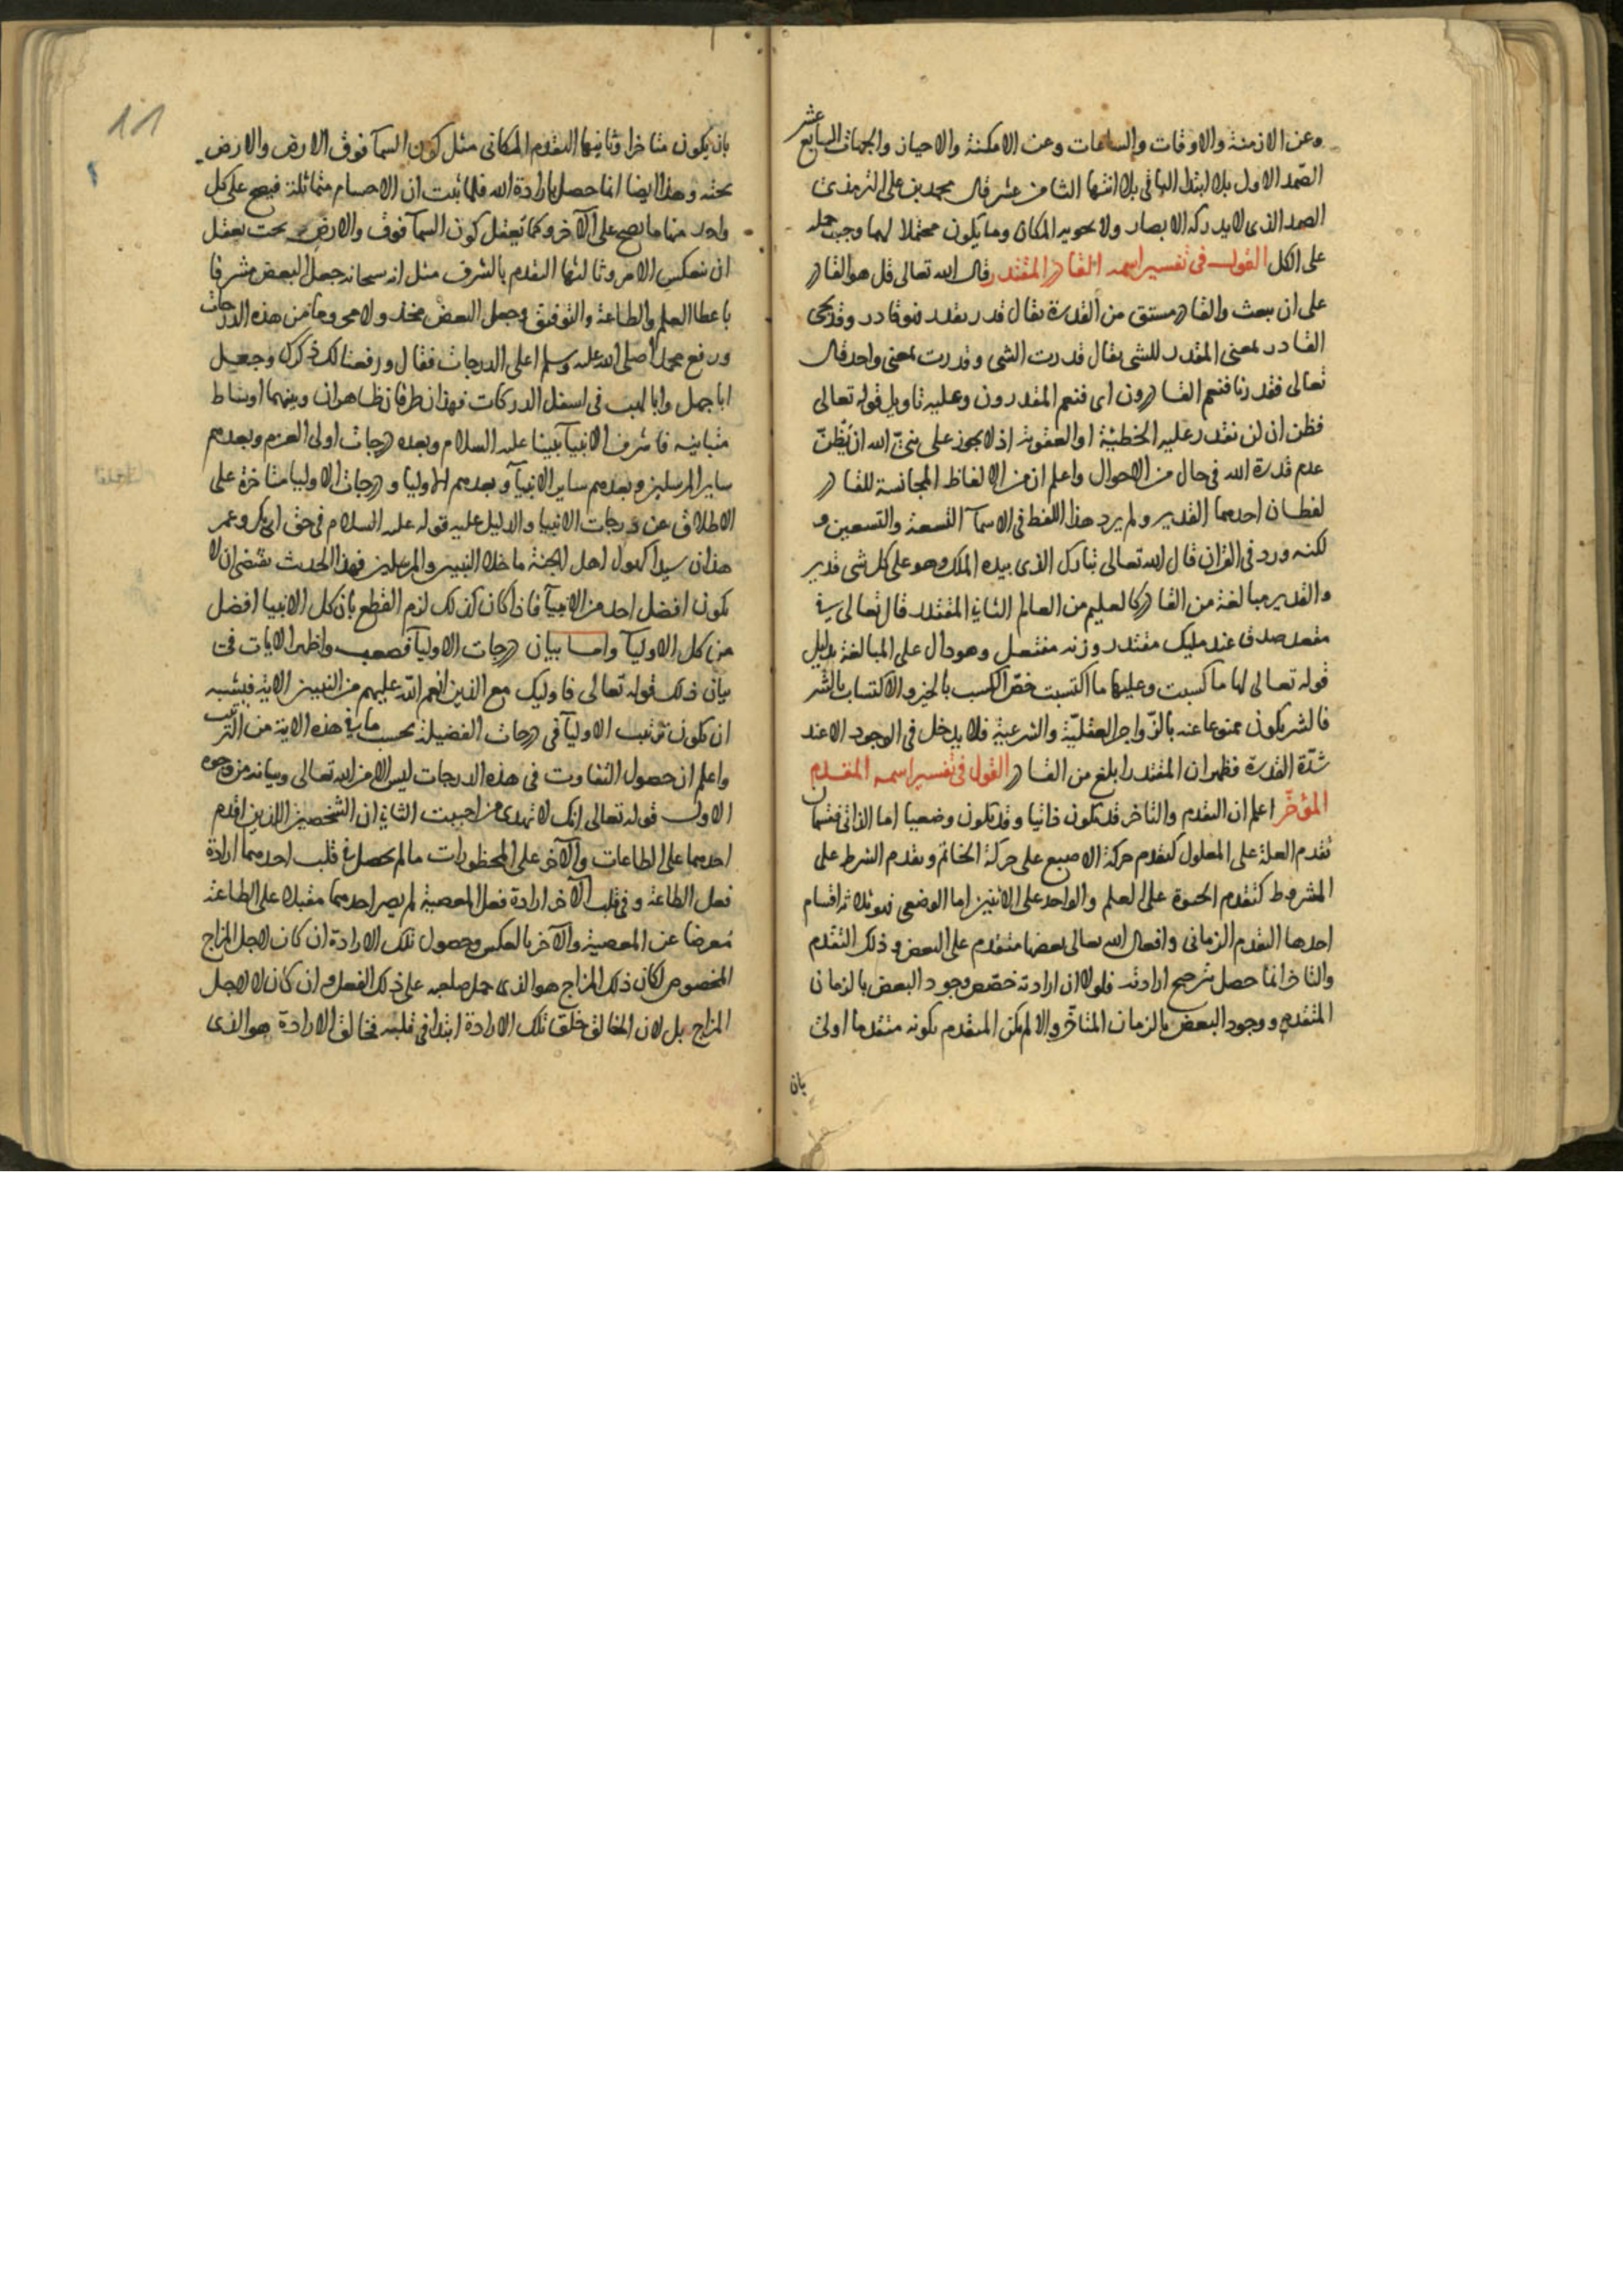 وعن الازمنة والاوقات والساعات وعن الامكنة والاحيان والجهات السابع عشر
الصمد الاول بلا ابتدا الباقى بلا انتها الثامن عشر قال محمد بن على الترمذى
الصمد الذى لا يدركه الابصار ولا يحويه المكان وما يكون محتملا لهما وجب حمله
على الكل القول فى تفسير اسمه القادر المقتدر قال الله تعالى قل هو القادر
على ان يبعث والقادر مشتق من القدرة يقال قدر يقدر فهو قادر وقد يجى
القادر بمعنى المقدر للشى يقال قدرت الشى وقدرت بمعنى واحد قال
تعالى فقدرنا فنعم القادرون اى فنعم المقدرون وعليه تاويل قوله تعالى
فظن ان لن نقدر عليه الخطيئة او العقوبة اذ لا يجوز على نبىّ الله ان يظنّ
عدم قدرة الله فى حال من الاحوال واعلم ان من الالفاظ المجانسة للقادر
لفظان احدهما القدير ولم يرد هذا اللفظ فى الاسمآ التسعة والتسعين و
لكنه ورد فى القران قال الله تعالى تبارك الذى بيده الملك وهو على كل شى قدير
والقدير مبالغة من القادر كالعليم من العالم الثانى المقتدر قال تعالى فى
مقعد صدق عند مليك مقتدر وزنه مفتعل وهو دال على المبالغة بدليل
قوله تعالى لها ما كسبت وعليها ما اكتسبت خصّ الكسب بالخير والاكتساب بالشر
فالشر يكون ممنوعا عنه بالزّواجر العقليّة والشرعية فلا يدخل فى الوجود الا عند
شدّة القدرة فظهر ان المقتدر ابلغ من القادر القول فى تفسير اسمه المقدم
المؤخّر اعلم ان التقدم والتاخر قد يكون ذاتيا وقد يكون وضعيا اما الذاتى فقسمان
تقدم العلة على المعلول كتقدم حركة الاصبع على حركة الخاتم وتقدم الشرط على
المشروط كتقدم الحيوة على العلم والواحد على الاثنين اما الوضعى فهو ثلاثة اقسام
احدها التقدم الزمانى وافعال الله تعالى بعضها متقدم على البعض وذلك التقدم
والتاخر انما حصل بترجيح ارادته فلولا ان ارادته خصّص وجود البعض بالزمان
المتقدم ووجود البعض بالزمان المتاخّر والا لم يكن المتقدم بكونه متقدما اولى
بان
11
بان يكون متاخرا وثانيها التقدم المكانى مثل كون السمآ فوق الارض والارض
تحته وهذا ايضا انما حصل بارادة الله فلما ثبت ان الاجسام متماثلة فيصح على كل
واحد منها ما يصح على الآخر وكما تعقل كون السمآ فوق والارض تحت يعقل
ان ينعكس الامر وثالثها التقدم بالشرف مثل انه سبحانه جعل البعض مشرفا
باعطا العلم والطاعة والتوفيق وجعل البعض مخذولا من هذه الدرجات
ورفع محمدا صلى الله عليه وسلم اعلى الدرجات فقال ورفعنا لك ذكرك وجعل
ابا جهل وابا لهب فى اسفل الدركات فهذان طرفان ظاهران وبينهما اوساط
متباينه فاشرف الانبيآ نبينا عليه السلام وبعده درجات اولى العزم وبعدهم
ساير المرسلين وبعدهم ساير الانبيآ وبعدهم الاوليا ودرجات الاوليا متاخرة على
الاطلاق عن درجات الانبيا والدليل عليه قوله عليه السلام فى حق ابى بكر وعمر
هذان سيدا كهول اهل الجنة ما خلا النبيين والمرسلين فهذا الحديث يقتضى ان لا
يكون افضل احد من الانبيآ فاذا كان كذلك لزم القطع بان كل الانبيا افضل
من كل الاوليآ واما بيان درجات الاوليآ فصعب واظهر الايات فى
بيان ذلك قوله تعالى فاوليك مع الذين انعم الله عليهم من النبيين الاية فيشبه
ان يكون ترتيب الاوليآ فى درجات الفضيلة بحسب ما فى هذه الاية من الترتيب
واعلم ان حصول التفاوت فى هذه الدرجات ليس الا من الله تعالى وبيانه من وجوه
الاول قوله تعالى انك لا تهدى من احببت الثانى ان الشخصين اللذين اقدم
احدهما على الطاعات والآخر على المحظورات ما لم يحصل فى قلب احدهما ارادة
فعل الطاعة وفى قلب الآخر ارادة فعل المعصية لم يصر احدهما مقبلا على الطاعة
مُعرضا عن المعصية والآخر بالعكس وحصول تلك الارادة ان كان لاجل المزاج
المخصوص لكان ذلك المزاج هو الذى حمل صاحبه على ذلك الفعل وان كان لا لاجل
المزاج بل لان الخالق خلق تلك الارادة ابتدا فى قلبه فخالق الارادة هو الذى